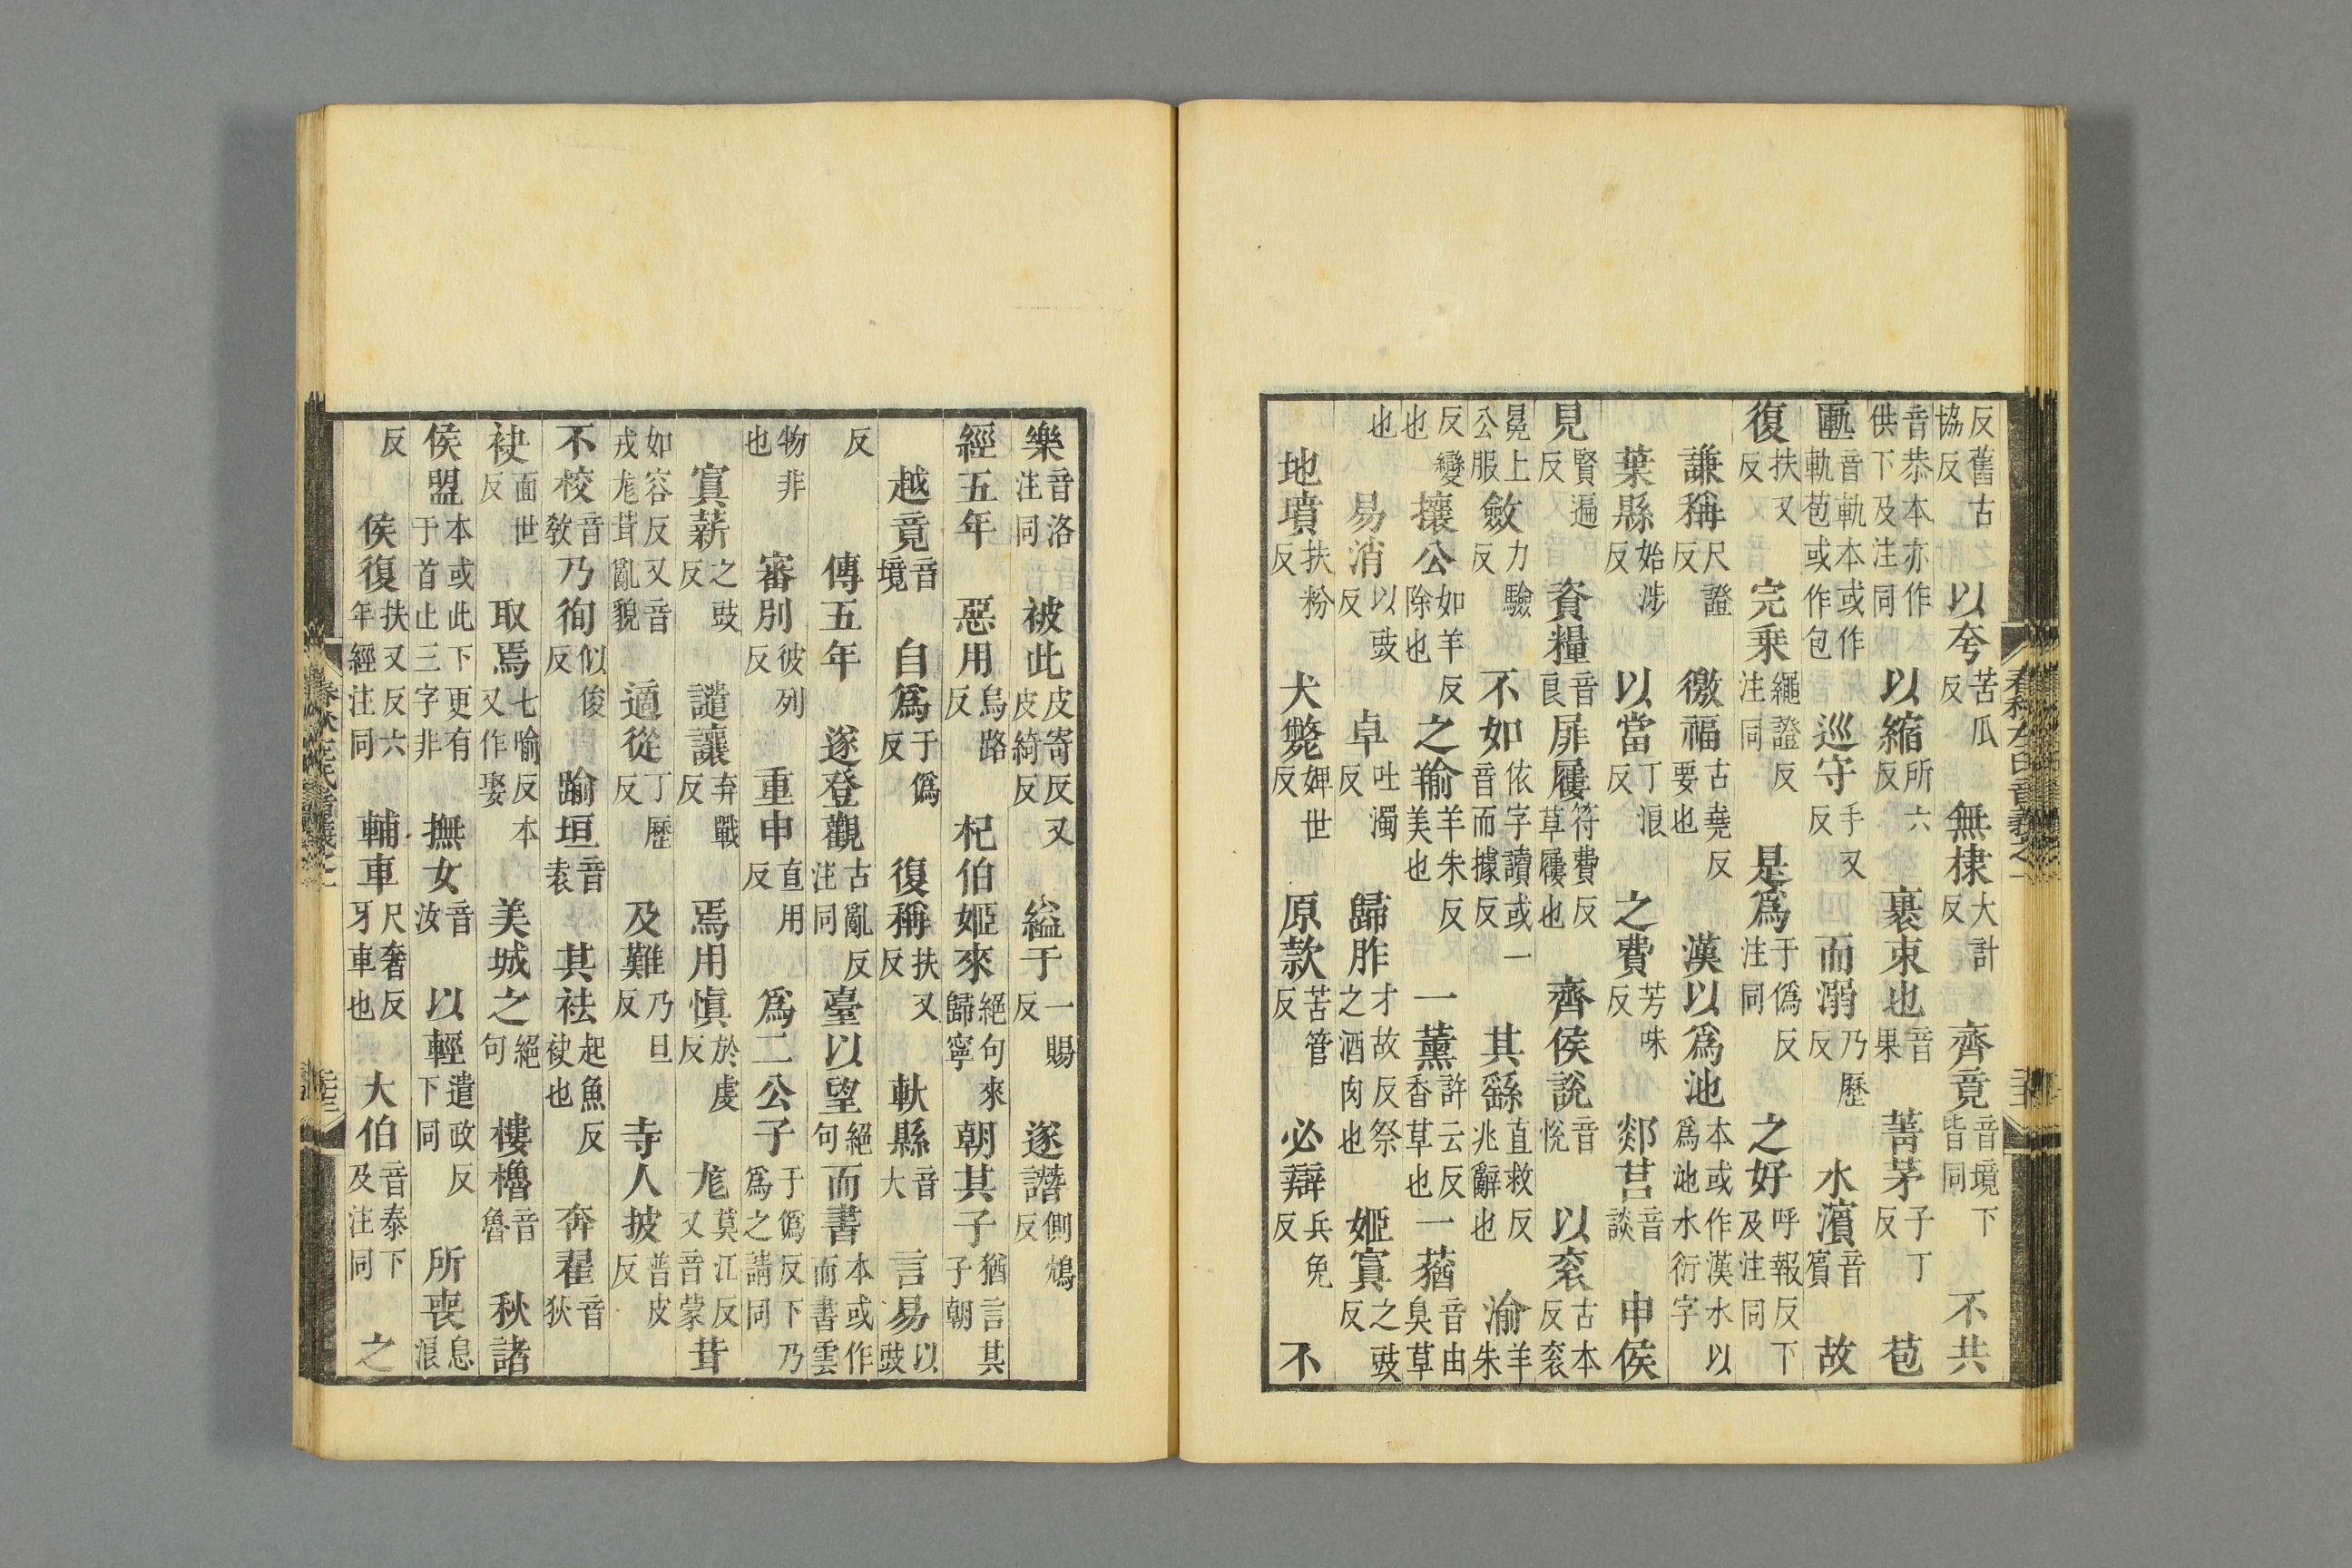 反舊古協反 以夸苦瓜反 無棣大計反 齊竟音境下皆同 不共
音恭本亦作供下及注同 以縮所六反 裹束也音果 菁茅子丁反 苞
匭音軌本或作軌苞或作包 巡守手又反 而溺乃歷反 水濱音賓 故
復扶又反 完乗繩證反注同 是爲于僞反注同 之好呼報反下及注同
謙稱尺證反 徼福古堯反要也 漢以爲池本或作漢水以爲池水衍字
葉縣始涉反 以當丁浪反 之費芳味反 郯莒音談 申侯
見賢遍反 資糧音良 屝屨符費反草屨也 齊侯說音悅 以衮古本反衮
冕上公服 斂力驗反 不如依字讀或一音而據反 其繇直救反兆辭也 渝羊朱
反變也 攘公如羊反除也 之羭羊朱反美也 一薰許云反香草也 一蕕音由臭草
也 易消以豉反 卓吐濁反 歸胙才故反祭之酒肉也 姬寘之豉反
地墳扶粉反 犬斃婢世反 原款苦管反 必辯兵免反 不
樂音洛注同 被此皮寄反又皮綺反 縊于一賜反 遂譖側鴆反
經五年 惡用烏路反 杞伯姬來絕句來歸寧 朝其子猶言其子朝
越竟音境 自爲于僞反 復稱扶又反 軑縣音大 言易以豉
反 傳五年 遂登觀古亂反注同 臺以望絕句 而書本或作而書雲
物非也 審別彼列反 重申直用反 爲二公子于僞反下乃爲之請同
寘薪之豉反 譴讓弃戰反 焉用愼於虔反 尨莫江反又音蒙 茸
如容反又音戎尨茸亂貌 適從丁歷反 及難乃旦反 寺人披普皮反
不校音教 乃徇似俊反 踰垣音袁 其袪起魚反袂也 奔翟音狄
袂面世反 取焉七喻反本又作娶 美城之絕句 樓櫓音魯 秋諸
侯盟本或此下更有于首止三字非 撫女音汝 以輕遣政反下同 所喪息浪
反 侯復扶又反六年經注同 輔車尺奢反牙車也 大伯音泰下及注同 之